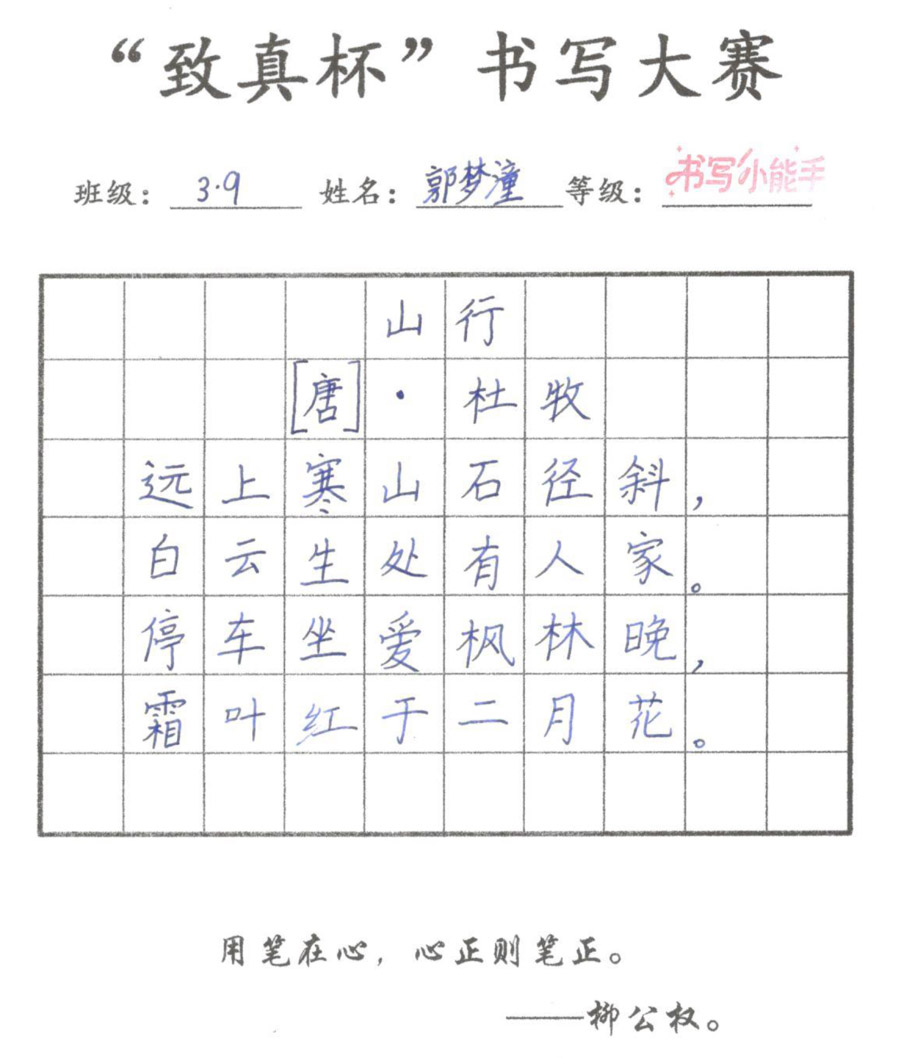 “致真杯”书写大赛
班级：3.9 姓名：郭梦潼 等级：书写小能手
山行
[唐]·杜牧
远上寒山石径斜，
白云生处有人家。
停车坐爱枫林晚，
霜叶红于二月花。
用笔在心，心正则笔正。
——柳公权。